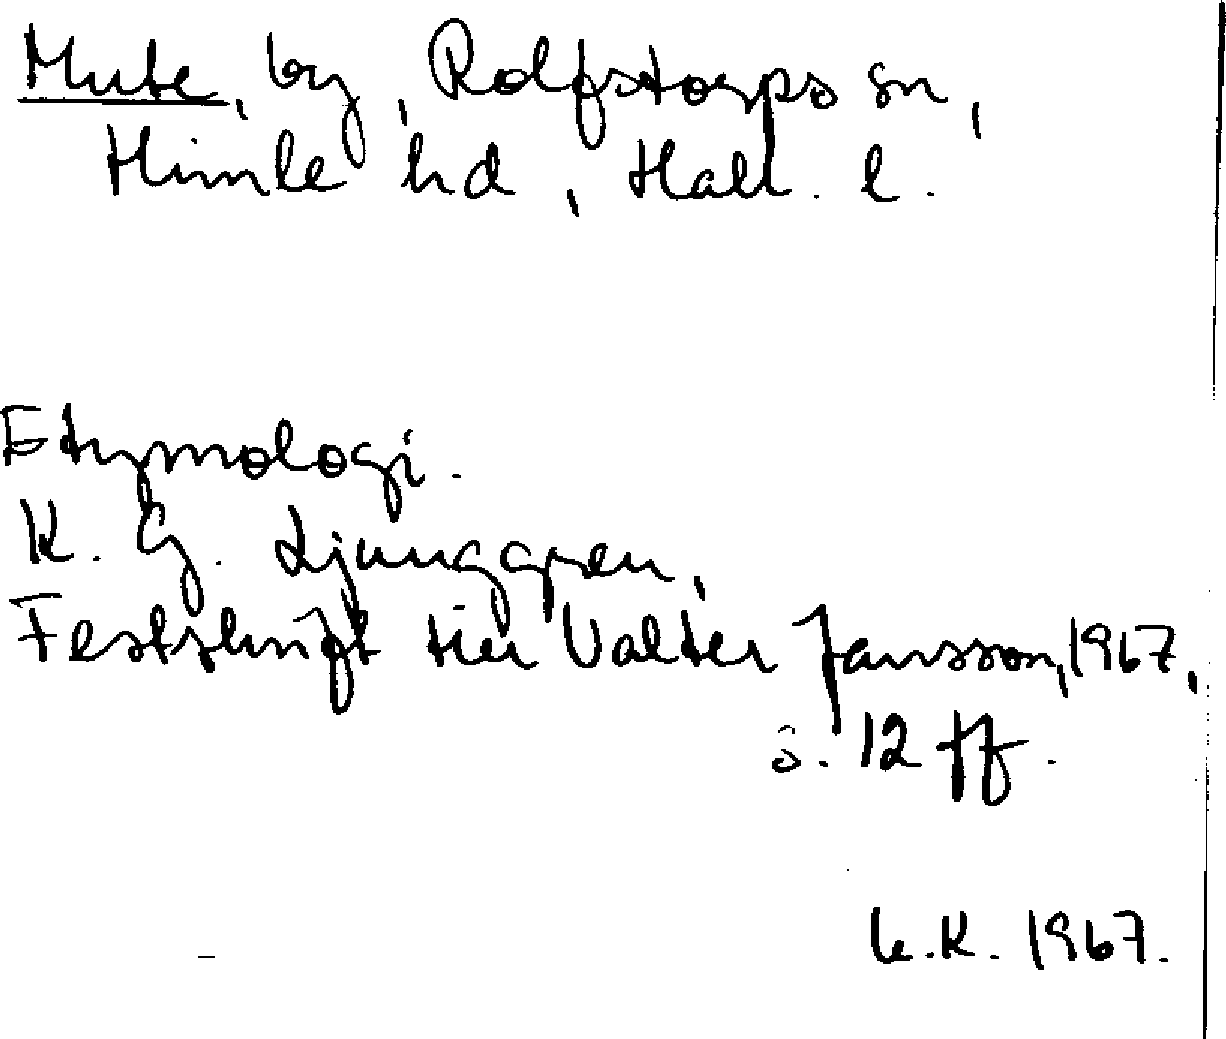 Mute, by, Rolfstorps sn,
Himle hd, Hall. l.
Etymologi.
K. G. Ljunggren,
Festskrift till Valter Jansson, 1967,
s. 12 ff.
K. 1967.